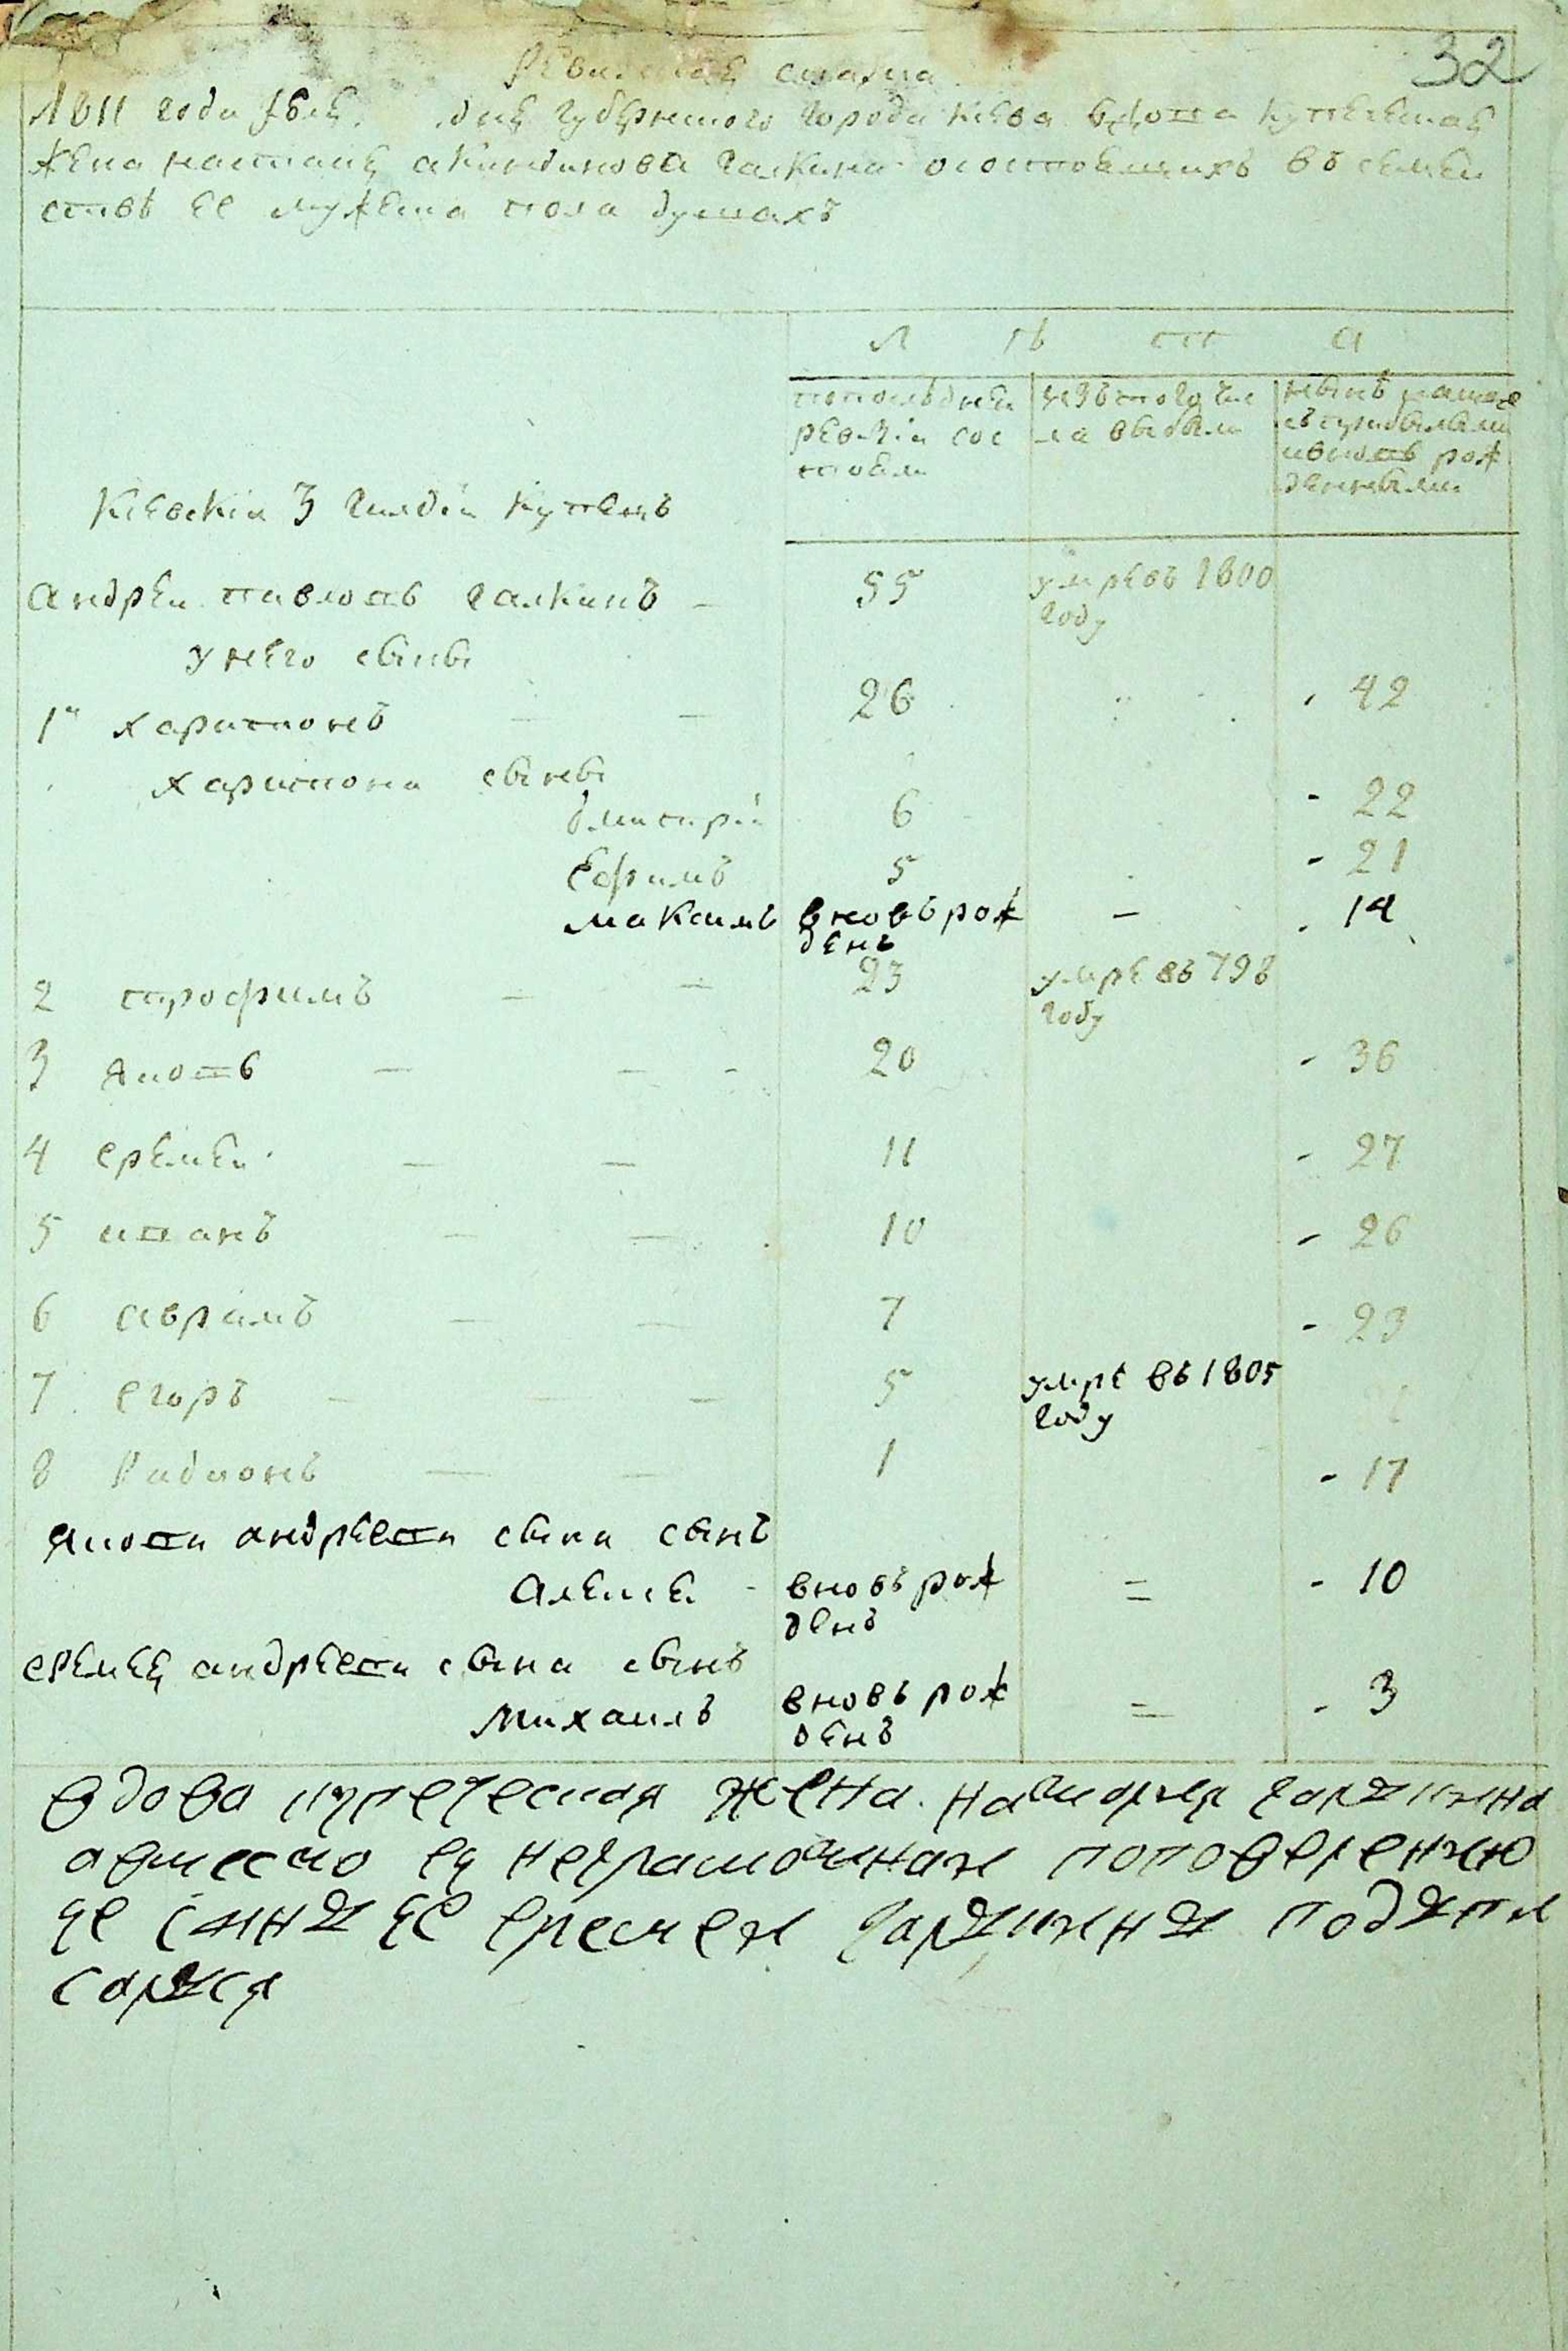 32
Ревизская сказка
1811 года дня губернского города Киева вдова купеческая
жена настасия акиндинова галкина осостоящихъ въ семей
стве ее мужеска пола душахъ
Л ѣ т а
попоследней ревизiи состояли
изътого числа выбыли
ныне налицо съ прибылыми ивновь рожденными
Кiевскiй 3 гилдiи купецъ
андрей павловъ галкинъ — 55 умре въ 1800 году
у него сыны
1й харитонъ — — 26 42
харитона сыны
дмитрiй 6 - 22
Ефимъ 5 - 21
максимъ вновь рожденъ — 14
2 трофимъ — — 23 умре въ 798 году
3 яковъ — — - 20 - 36
4 еремей — — 11 - 27
5 иванъ — — 10 - 26
6 аврамъ — — 7 - 23
7 егоръ — — — 5 умре въ 1805 году
8 Радионъ — — 1 - 17
якова андреева сына сынъ
алексей - вновь рожденъ = - 10
еремея андреева сына сынъ
михаилъ вновь рожденъ = - 3
вдова купеческая жена настасия галкина
авместо ея неграмотная поповерению
ее синъ ее еремей галкинъ подпи
салься